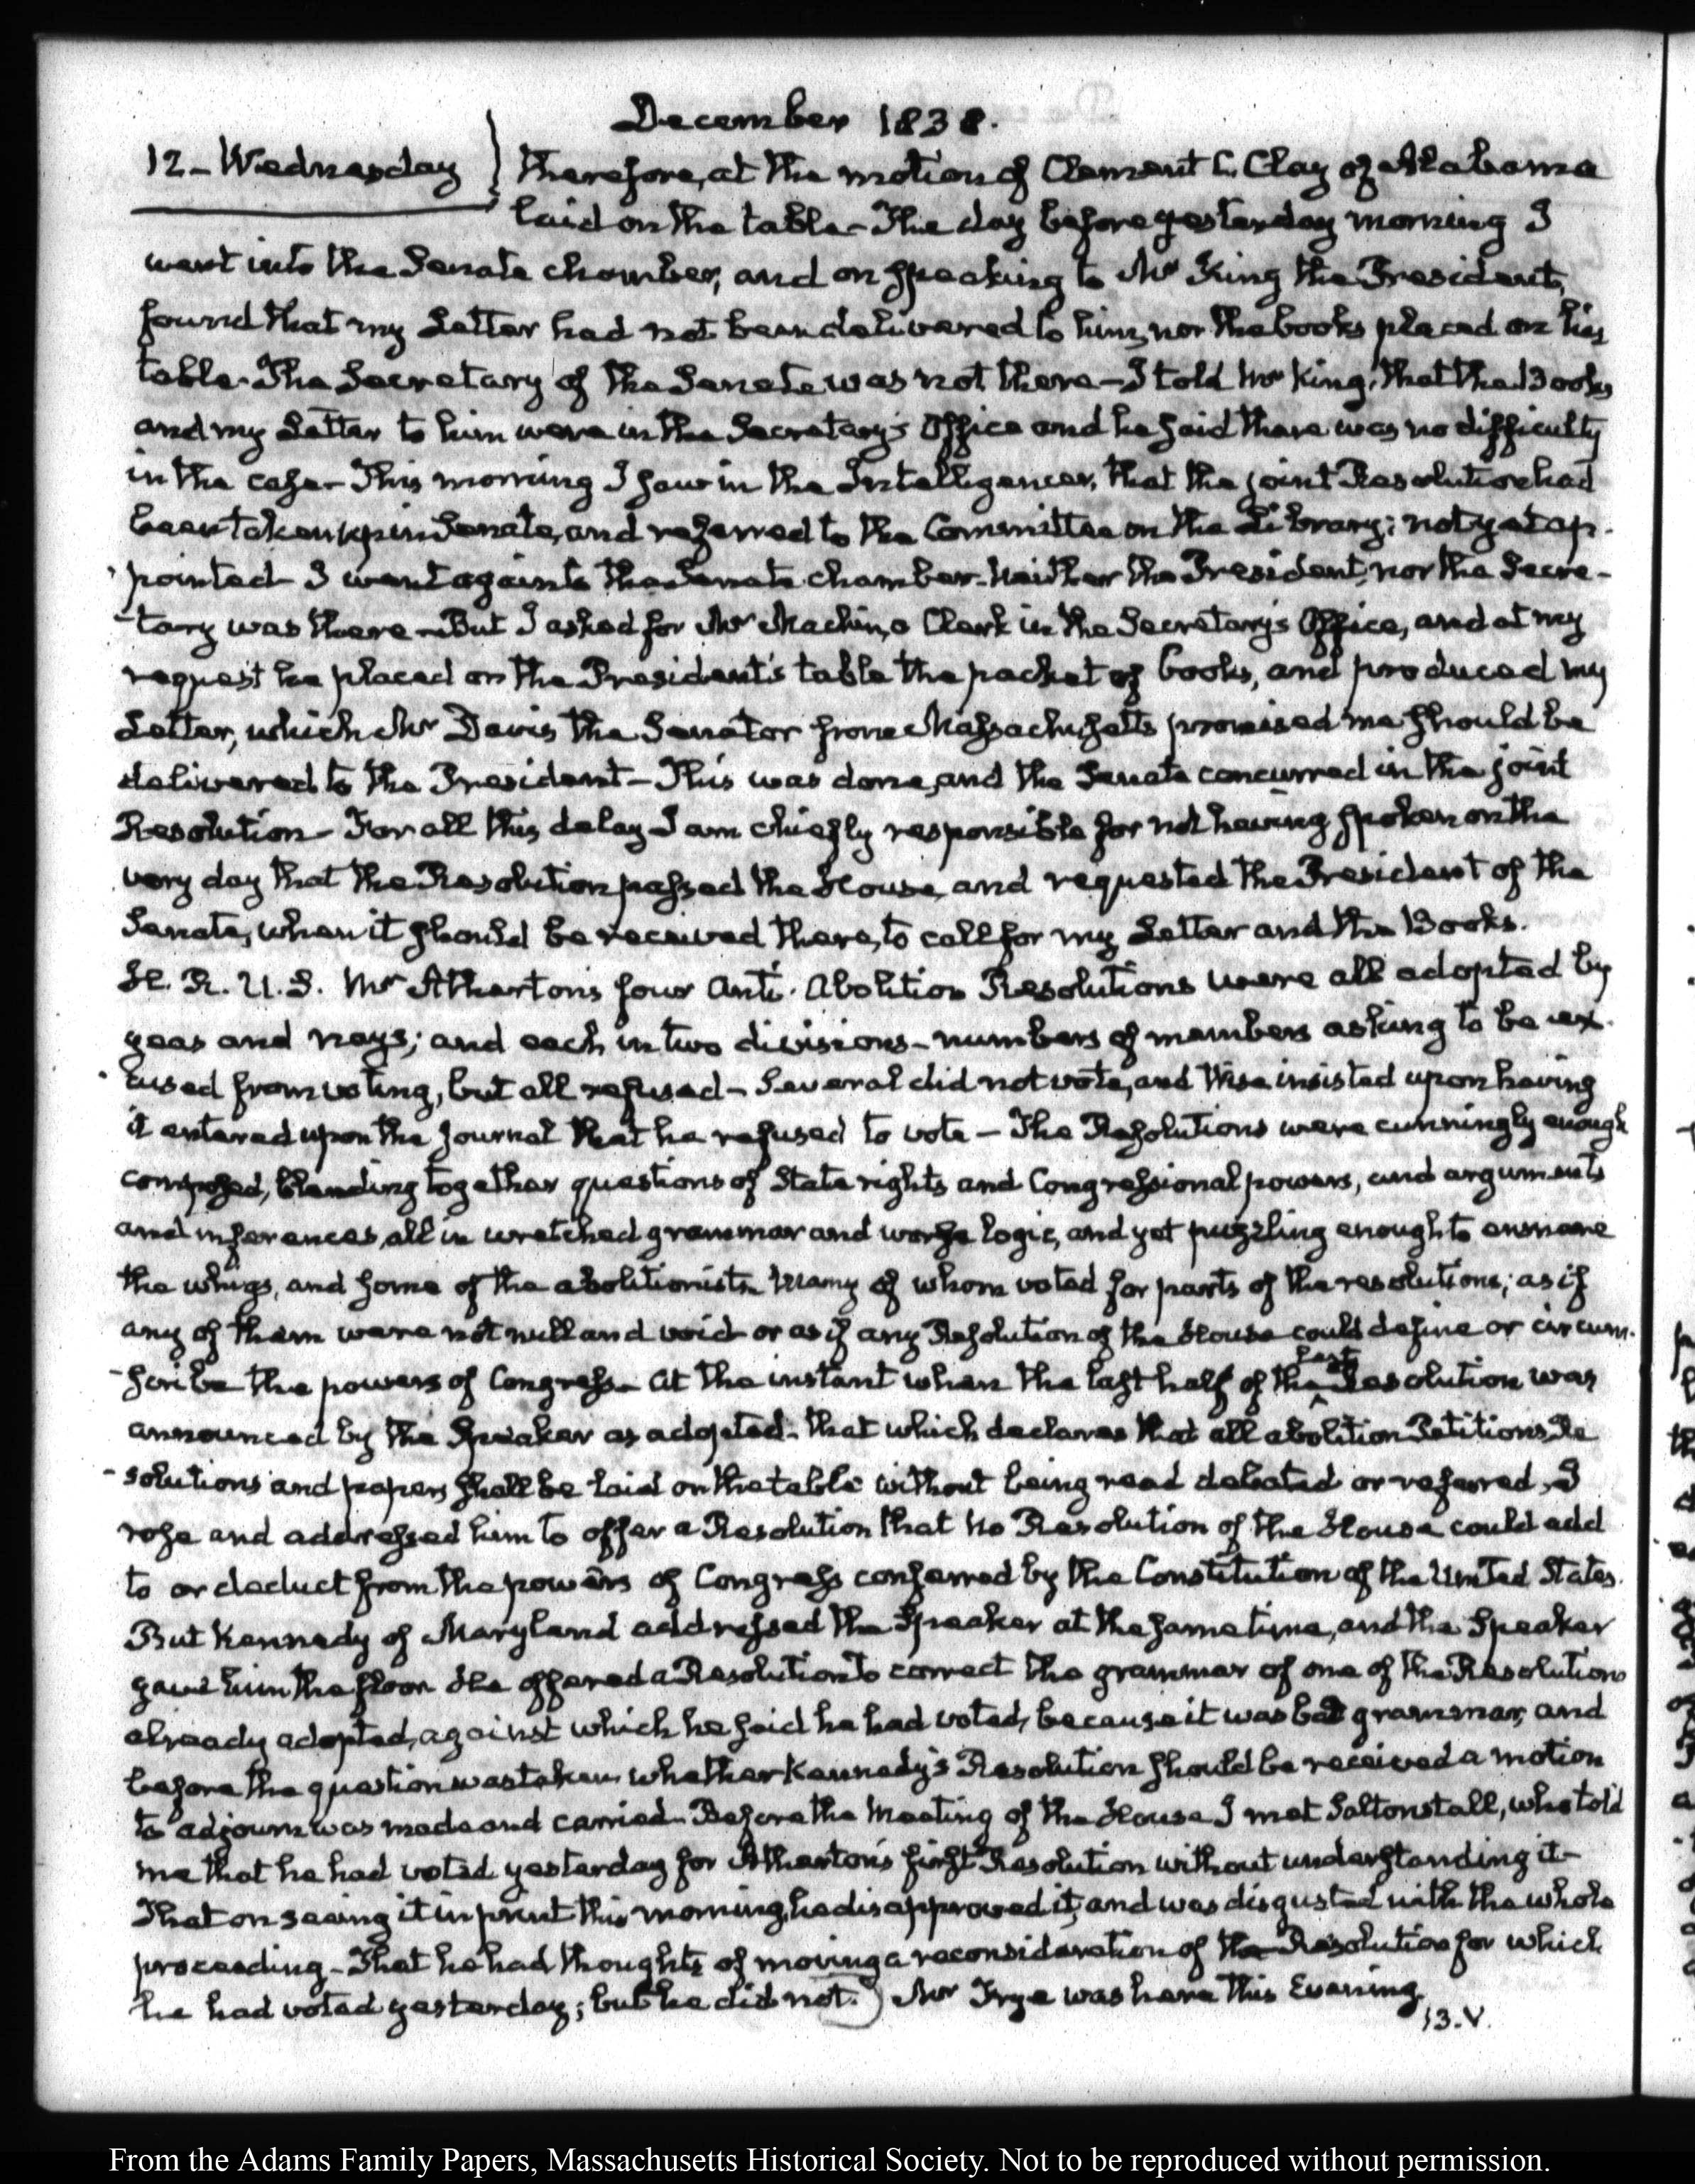 December 1838.
12 - Wednesday } therefore, at the motion of Clement C. Clay of Alabama
laid on the table - The day before yesterday morning I
went into the Senate chamber, and on speaking to Mr King the President,
found that my Letter had not been delivered to him, nor the books placed on his
table. The Secretary of the Senate was not there - I told Mr King, that the Books
and my Letter to him were in the Secretary's Office and he said there was no difficulty
in the case - This morning I saw in the Intelligencer, that the joint Resolution had
been taken up in Senate, and referred to the Committee on the Library; not yet ap-
pointed - I went again to the Senate chamber - Neither the President, nor the Secre-
-tary was there - But I asked for Mr Machin, a Clerk in the Secretary's Office, and at my
request he placed on the President's table the packet of books, and produced my
Letter, which Mr Davis the Senator from Massachusetts promised me should be
delivered to the President - This was done, and the Senate concurred in the joint
Resolution - For all this delay I am chiefly responsible for not having spoken on the
very day that the Resolution passed the House, and requested the President of the
Senate, when it should be received there, to call for my Letter and the Books.
H. R. U. S. Mr Atherton's four Anti-Abolition Resolutions were all adopted by
yeas and nays; and each in two divisions - numbers of members asking to be ex-
-cused from voting, but all refused - Several did not vote, and Wise insisted upon having
it entered upon the Journal that he refused to vote - The Resolutions were cunningly enough
composed, blending together questions of State rights and Congressional powers, and arguments
and inferences, all in wretched grammar and worse logic, and yet puzzling enough to ensnare
the whigs, and some of the abolitionists. Many of whom voted for parts of the resolutions; as if
any of them were not null and void - or as if any Resolution of the House could define or circum-
-scribe the powers of Congress - At the instant when the last half of the last Resolution was
announced by the Speaker as adopted - that which declares that all abolition Petitions, Re
-solutions and papers shall be laid on the table without being read debated or referred, I
rose and addressed him to offer a Resolution that no Resolution of the House could add
to or deduct from the powers of Congress conferred by the Constitution of the United States.
But Kennedy of Maryland addressed the Speaker at the same time, and the Speaker
gave him the floor. He offered a Resolution to correct the grammar of one of the Resolutions
already adopted, against which he said he had voted, because it was bad grammar, and
before the question was taken whether Kennedy's Resolution should be received a motion
to adjourn was made and carried - Before the Meeting of the House I met Saltonstall, who told
me that he had voted yesterday for Atherton's first Resolution without understanding it -
That on seeing it in print this morning, he disapproved it, and was disgusted with the whole
proceeding - That he had thoughts of moving a reconsideration of the Resolution for which
he had voted yesterday; but he did not.) Mr Frye was here this Evening.
13. V.
From the Adams Family Papers, Massachusetts Historical Society. Not to be reproduced without permission.